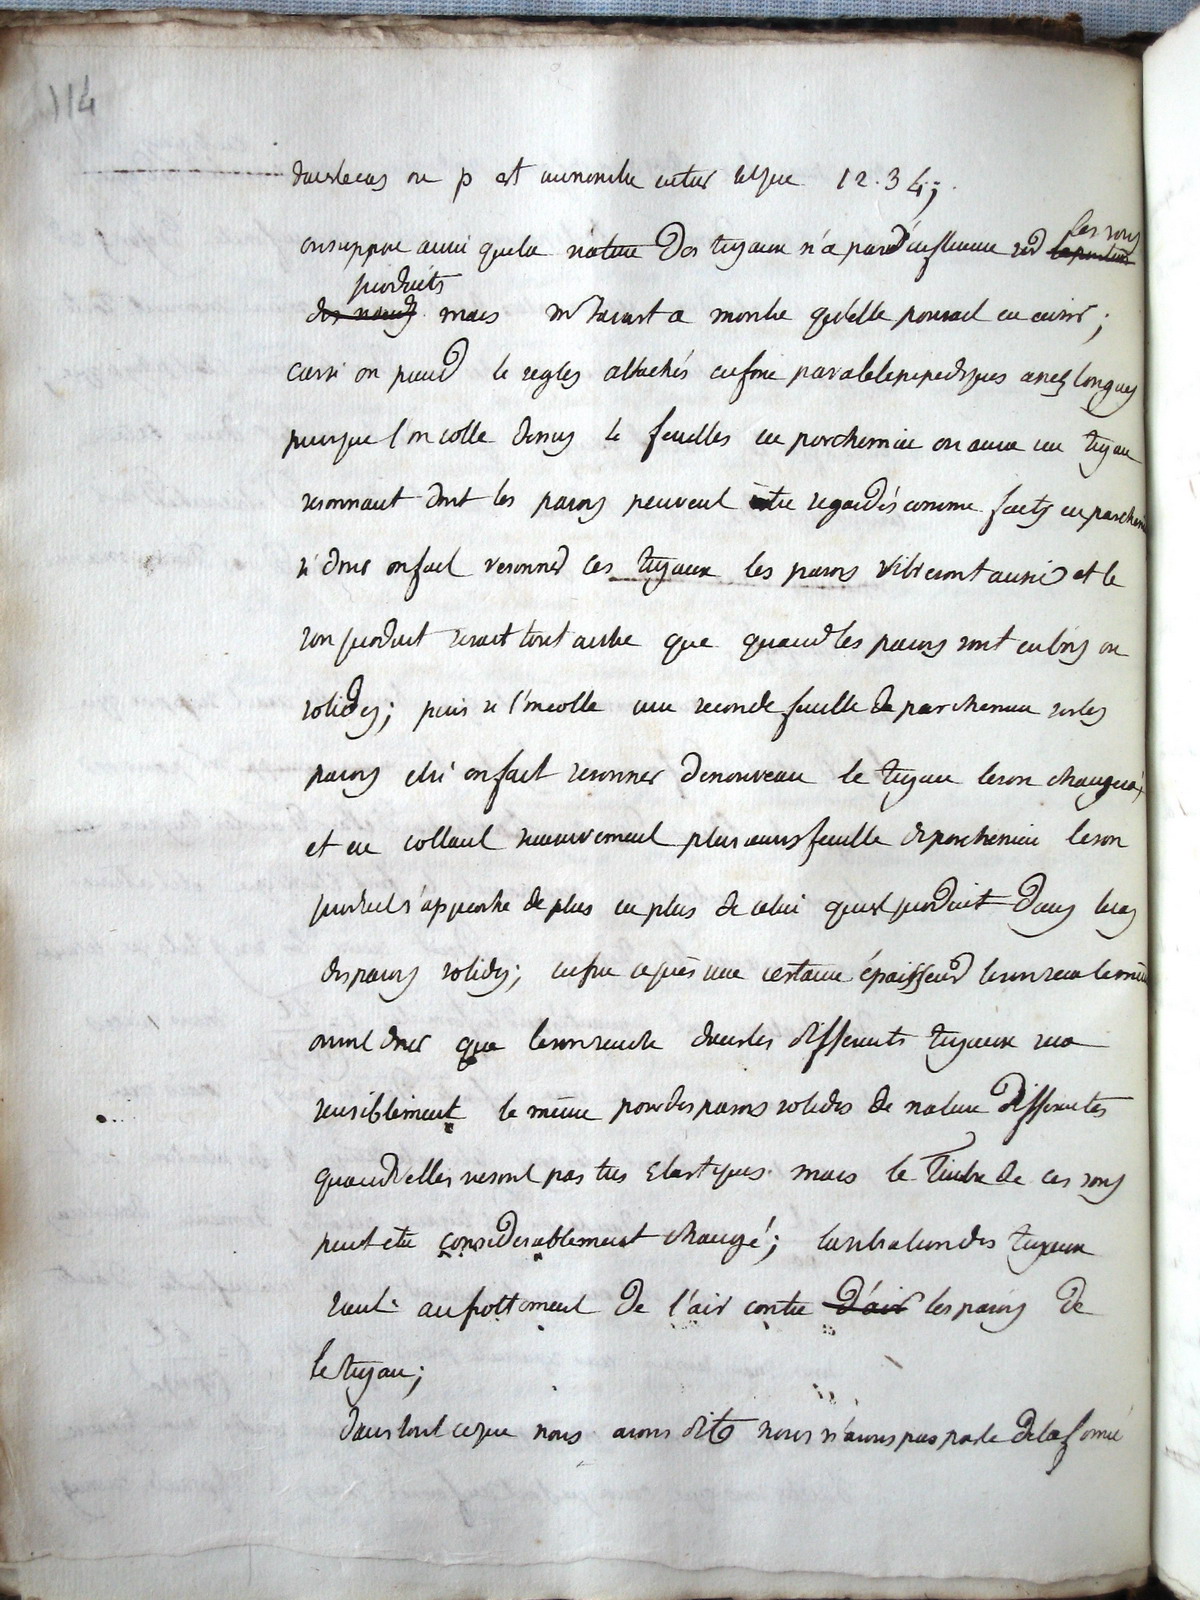 114
dans le cas ou p est un nombre entier tel que 1 2. 3 4;.
on suppose aussi que la nature des tuyaux n'a pas d'influence sur les sons
produits
des nœuds mais mr Savart a montré qu'elle pouvait en avoir;
car si on prend le regles attachés en forme paralelepipediques assez longues
puis que l'on colle dessus le feuilles en parchemin on aura un tuyau
resonnant dont les parois peuvent être regardés comme faits en parchemin
si donc on fait resonner ces tuyaux les parois vibreront aussi et le
son produit serait tout autre que quand les parois sont en bois ou
solides; puis si l'on colle une seconde feuille de parchemin sur les
parois et si on fait resonner de nouveau le tuyau le son changera,
et en collant successivement plusieurs feuille de parchemin le son
produit s'approche de plus en plus de celui qui est produit dans le cas
des parois solides; enfin après une certaine épaisseur le son sera le même
on voit donc que le son rendu dans les differents tuyaux sera
sensiblement le même pour des parois solides de nature differentes
quand elles ne sont pas très elastiques. mais le timbre de ces sons
peut etre considerablement changé; la vibration des tuyaux
vient au frottement de l'air contre d'air les parois de
le tuyau;
dans tout ce que nous avons dit nous n'avons pas parlé de la forme